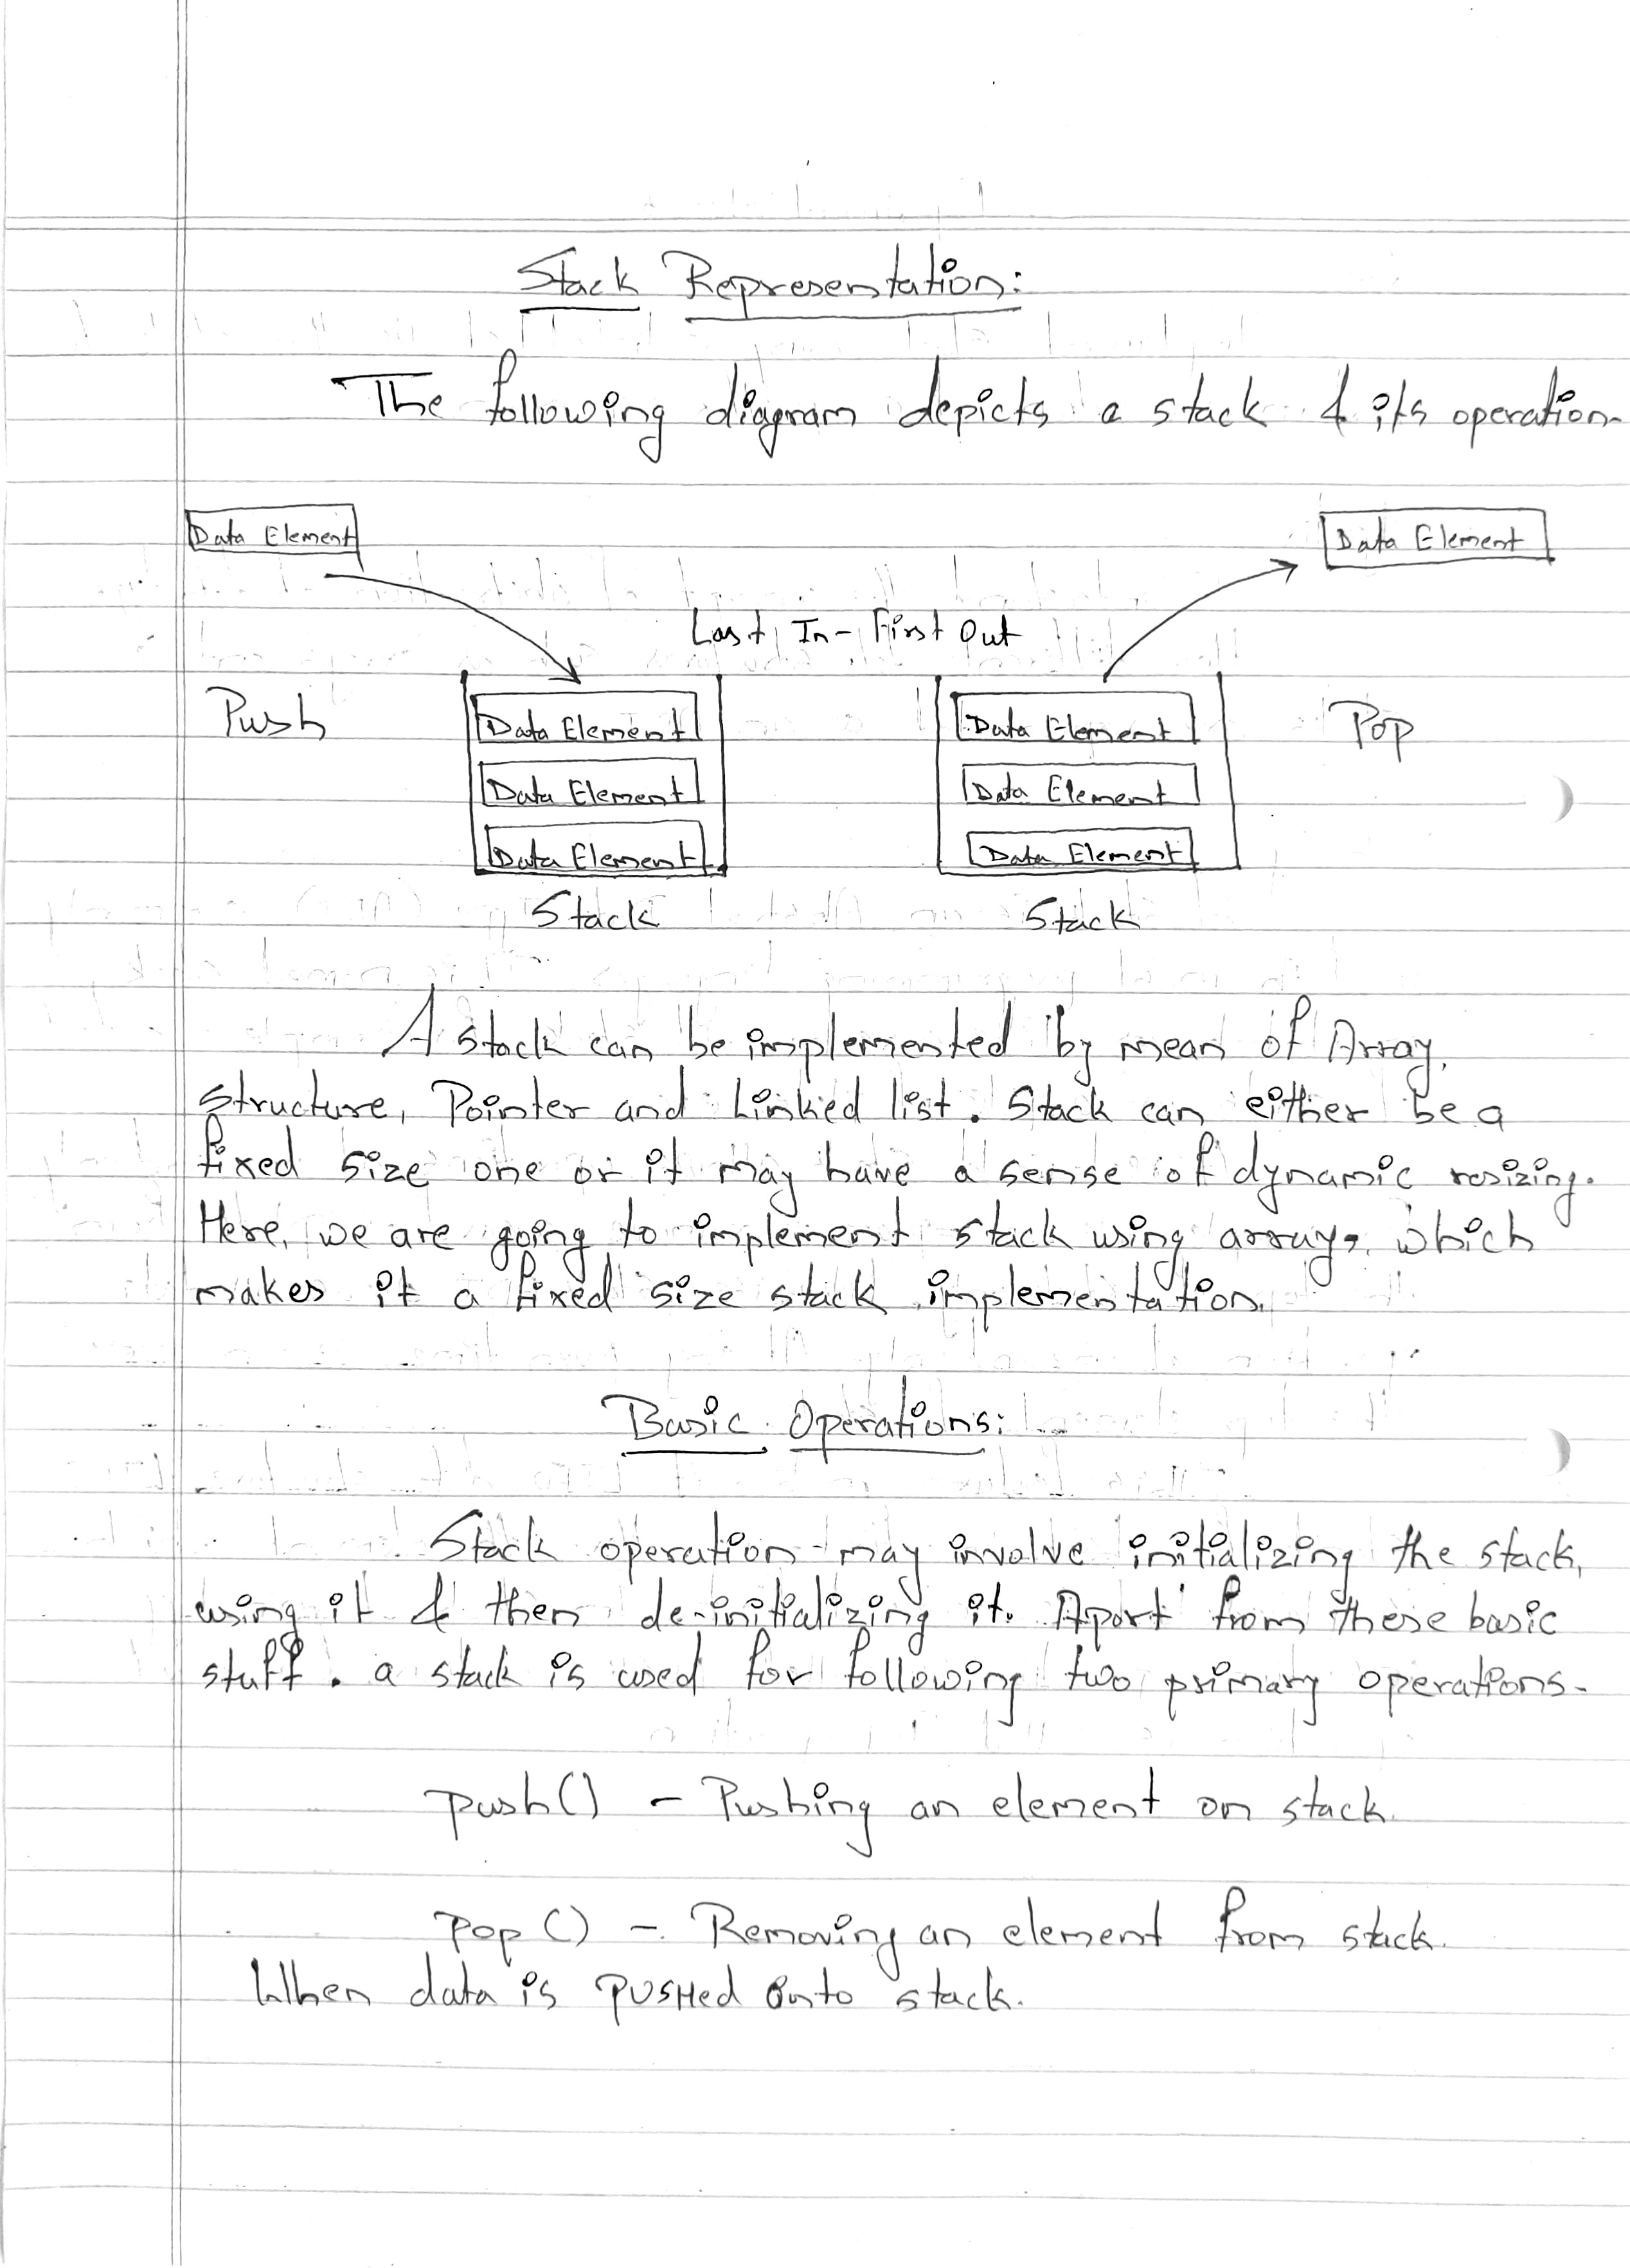 Stack Representation:
The following diagram depicts a stack & its operation.
Data Element
Data Element
Last In - First Out
Push
Data Element
Data Element
Pop
Data Element
Data Element
Data Element
Data Element
Stack
Stack
A stack can be implemented by mean of Array,
structure, Pointer and Linked list. Stack can either be a
fixed size one or it may have a sense of dynamic resizing.
Here, we are going to implement stack using arrays, which
makes it a fixed size stack implementation.
Basic Operations:
Stack operation may involve initializing the stack,
using it & then de-initializing it. Apart from these basic
stuff. a stack is used for following two primary operations.
push() - Pushing an element on stack.
pop() - Removing an element from stack.
When data is PUSHed onto stack.